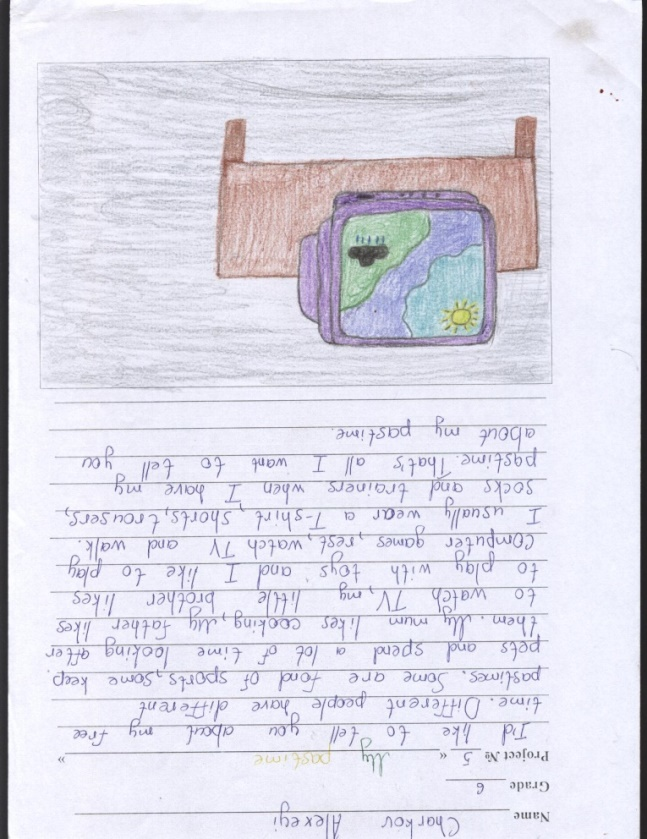 Name Charkov Alexeyi
Grade 6
Project № 5 « My pastime »
I'd like to tell you about my free
time. Different people have different
pastimes. Some are fond of sports, some keep
pets and spend a lot of time looking after
them. My mum likes cooking, My father likes
to watch TV, my little brother likes
to play with toys and I like to play
computer games, rest, watch TV and walk.
I usually wear a T-shirt, shorts, trousers,
socks and trainers when I have my
pastime. That's all I want to tell you
about my pastime.